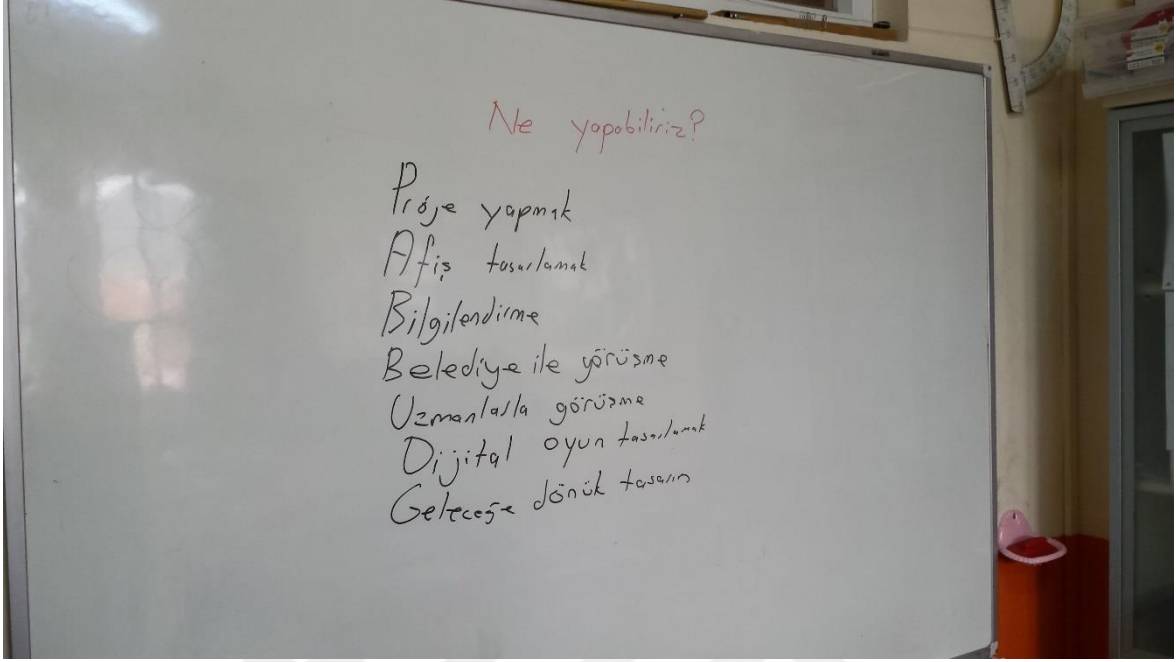 Ne yapabiliriz?
Proje yapmak
Afiş tasarlamak
Bilgilendirme
Belediye ile görüşme
Uzmanlarla görüşme
Dijital oyun tasarlamak
Geleceğe dönük tasarım